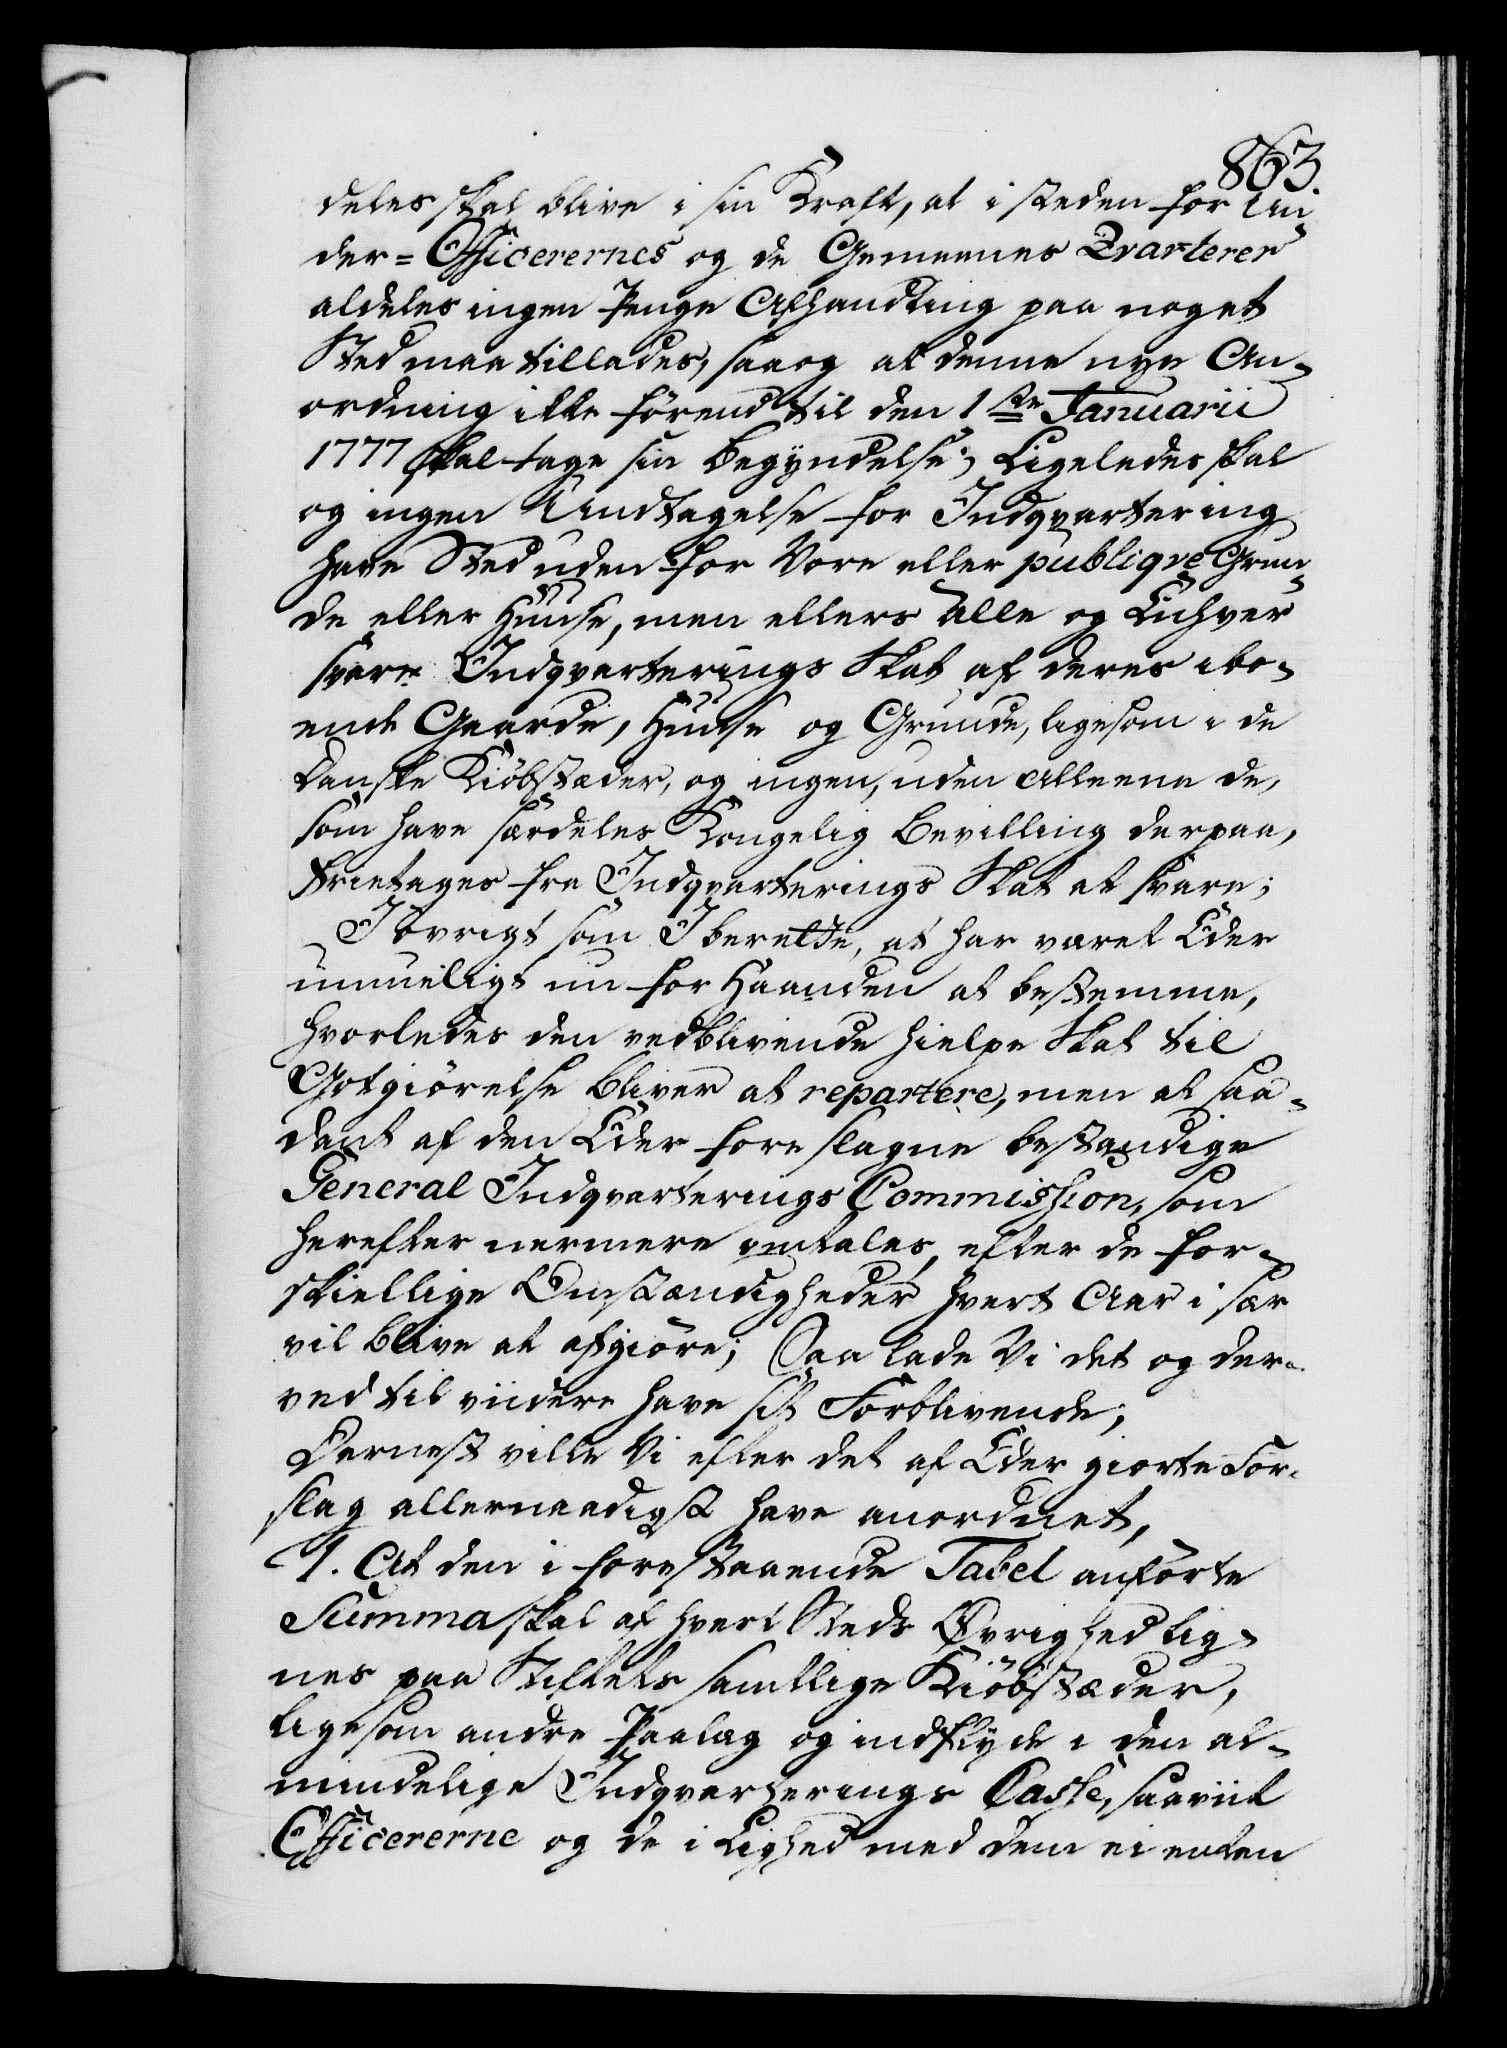 863.
deles skal blive i sin Kraft, at i steden for Un
der=Officerernes og de Gemeenes Qvarterer
aldeles ingen Penge Afhandling paa noget
Sted maa tillades, saa og at denne nye An-
ordning ikke förend til den 1ste Januarii
1777 skal tage sin Begyndelse; Ligeledes skal
og ingen Undtagelse for Indqvartering
have Sted uden for Vore eller publiqve Grun-
de eller Huuse, men ellers alle og Enhver
svare Indqvarterings Skat af deres ibo-
ende Gaarde, Huuse og Grunde, ligesom i de
Danske Kiöbstæder, og ingen, uden alleene de,
som have særdeles Kongelig Bevilling derpaa,
frietages fra Indqvarterings Skat at svare;
I övrigt som I berette, at har været Eder
umueligt nu for Haanden at bestemme,
hvorledes den vedblivende Hielpe Skat til
Gotgiörelse bliver at repartere, men at saa-
dant af den Eder foreslagne bestandige
General Indqvarterings Commission, som
herefter nermere omtales, efter de for-
skiellige Omstændigheder hvert Aar i sær
vil blive at afgiöre; Saa lade Vi det og der-
ved til viidere have sit Forblivende;
Dernest ville Vi efter det af Eder giorte For-
slag allernaadigst have anordnet,
1. At den i forestaaende Tabel anförte
Summa skal af hvert Steds Øvrighed lig-
nes paa Stiftets samtlige Kiöbstæder,
ligesom andre Paalæg og indflyde i den al-
mindelige Indqvarterings Casse, saaviit
Officererne og de i Lighed med dem ei enten